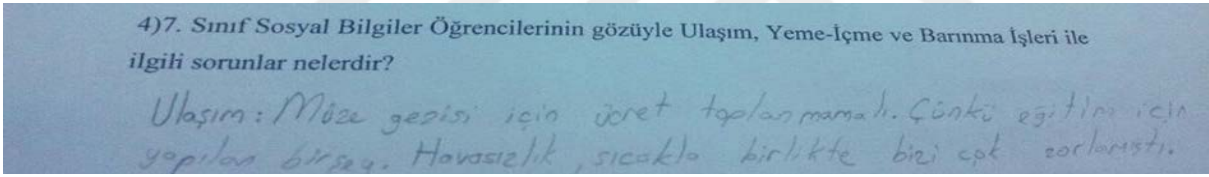 4)7. Sınıf Sosyal Bilgiler Öğrencilerinin gözüyle Ulaşım, Yeme-İçme ve Barınma İşleri ile
ilgili sorunlar nelerdir?
Ulaşım: Müze gezisi için ücret toplanmamalı. Çünkü eğitim için
yapılan birşey. Havasızlık, sıcakla birlikte bizi çok zorlamıştı.